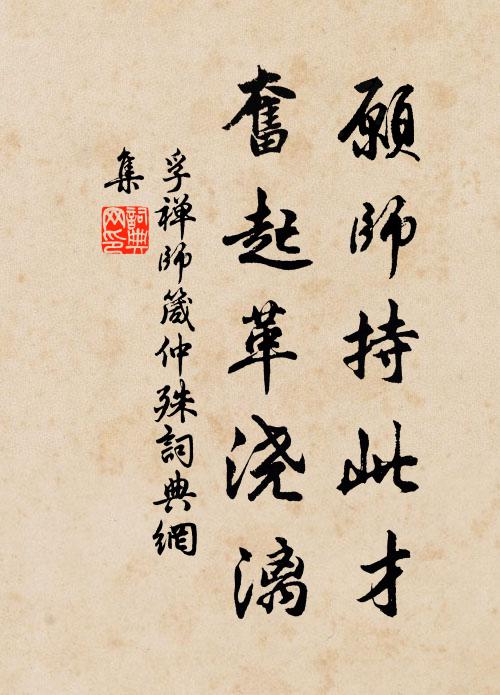 願師持此才
奮起革浇漓
孚禅師箴仲殊詞典網
集
詞典
网印